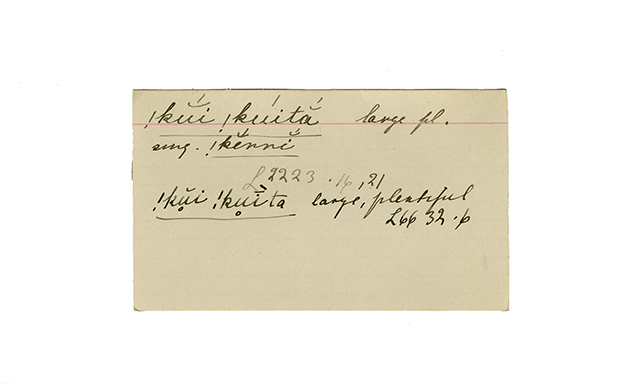 !kŭi !kuită large pl.
sing. !kĕnnĭ
L 2223 . 16, 21
!kŭi !kŭita large, plentiful
L66 32 . 6